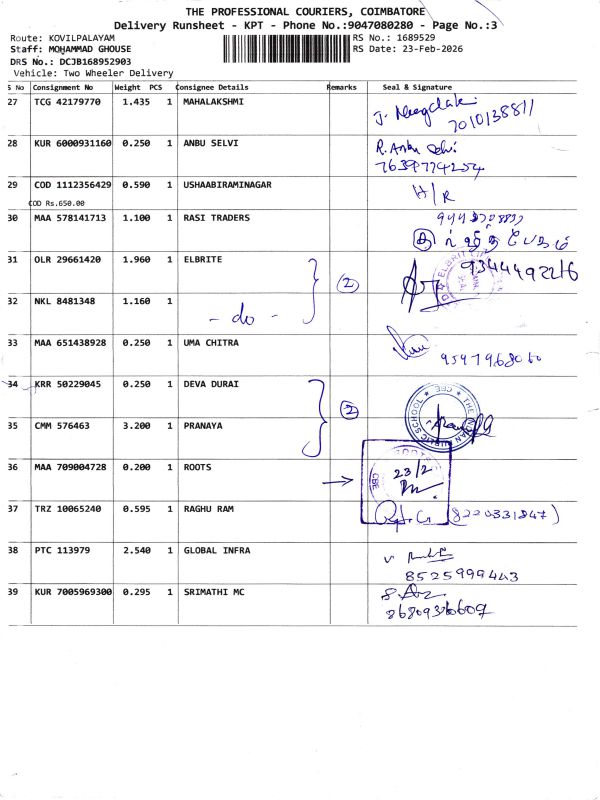 THE PROFESSIONAL COURIERS, COIMBATORE
Delivery Runsheet - KPT - Phone No.:9047080280 - Page No.:3
Route: KOVILPALAYAM
RS No.: 1689529
Staff: MOHAMMAD GHOUSE
RS Date: 23-Feb-2026
DRS No.: DCJB168952903
Vehicle: Two Wheeler Delivery
S No Consignment No Weight PCS Consignee Details Remarks Seal & Signature
27 TCG 42179770 1.435 1 MAHALAKSHMI
7010138811
28 KUR 6000931160 0.250 1 ANBU SELVI R. Anbu Selvi
7639774254
29 COD 1112356429 0.590 1 USHAABIRAMINAGAR H/R
COD Rs.650.00
30 MAA 578141713 1.100 1 RASI TRADERS
31 OLR 29661420 1.960 1 ELBRITE 2 ELBRIT 9344492216
32 NKL 8481348 1.160 1 - do -
33 MAA 651438928 0.250 1 UMA CHITRA
34 KRR 50229045 0.250 1 DEVA DURAI 2
35 CMM 576463 3.200 1 PRANAYA
36 MAA 709004728 0.200 1 ROOTS → 23/2 CBE
37 TRZ 10065240 0.595 1 RAGHU RAM (8220331847)
38 PTC 113979 2.540 1 GLOBAL INFRA
8525999443
39 KUR 7005969300 0.295 1 SRIMATHI MC